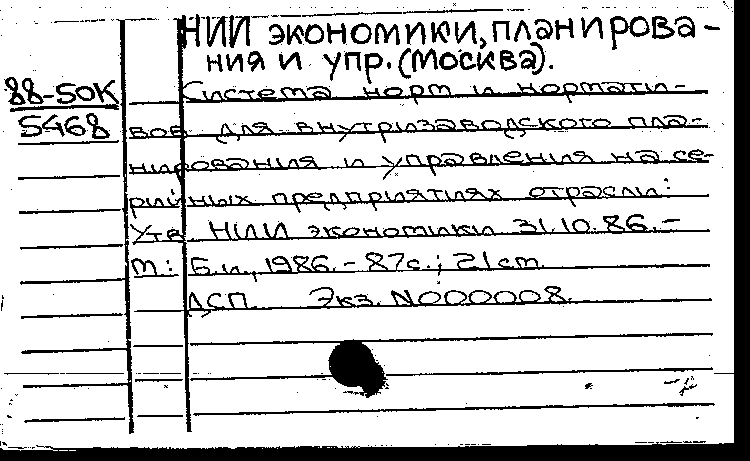 НИИ экономики, планирова-
ния и упр. (Москва).
88-50К
5468
Система норм и нормати-
вов для внутризаводского пла-
нирования и управления на се-
рийных предприятиях отрасли:
Утв. НИИ экономики 31.10.86.-
М.: Б.и., 1986.-87с.; 21см.
ДСП. Экз. N000008.